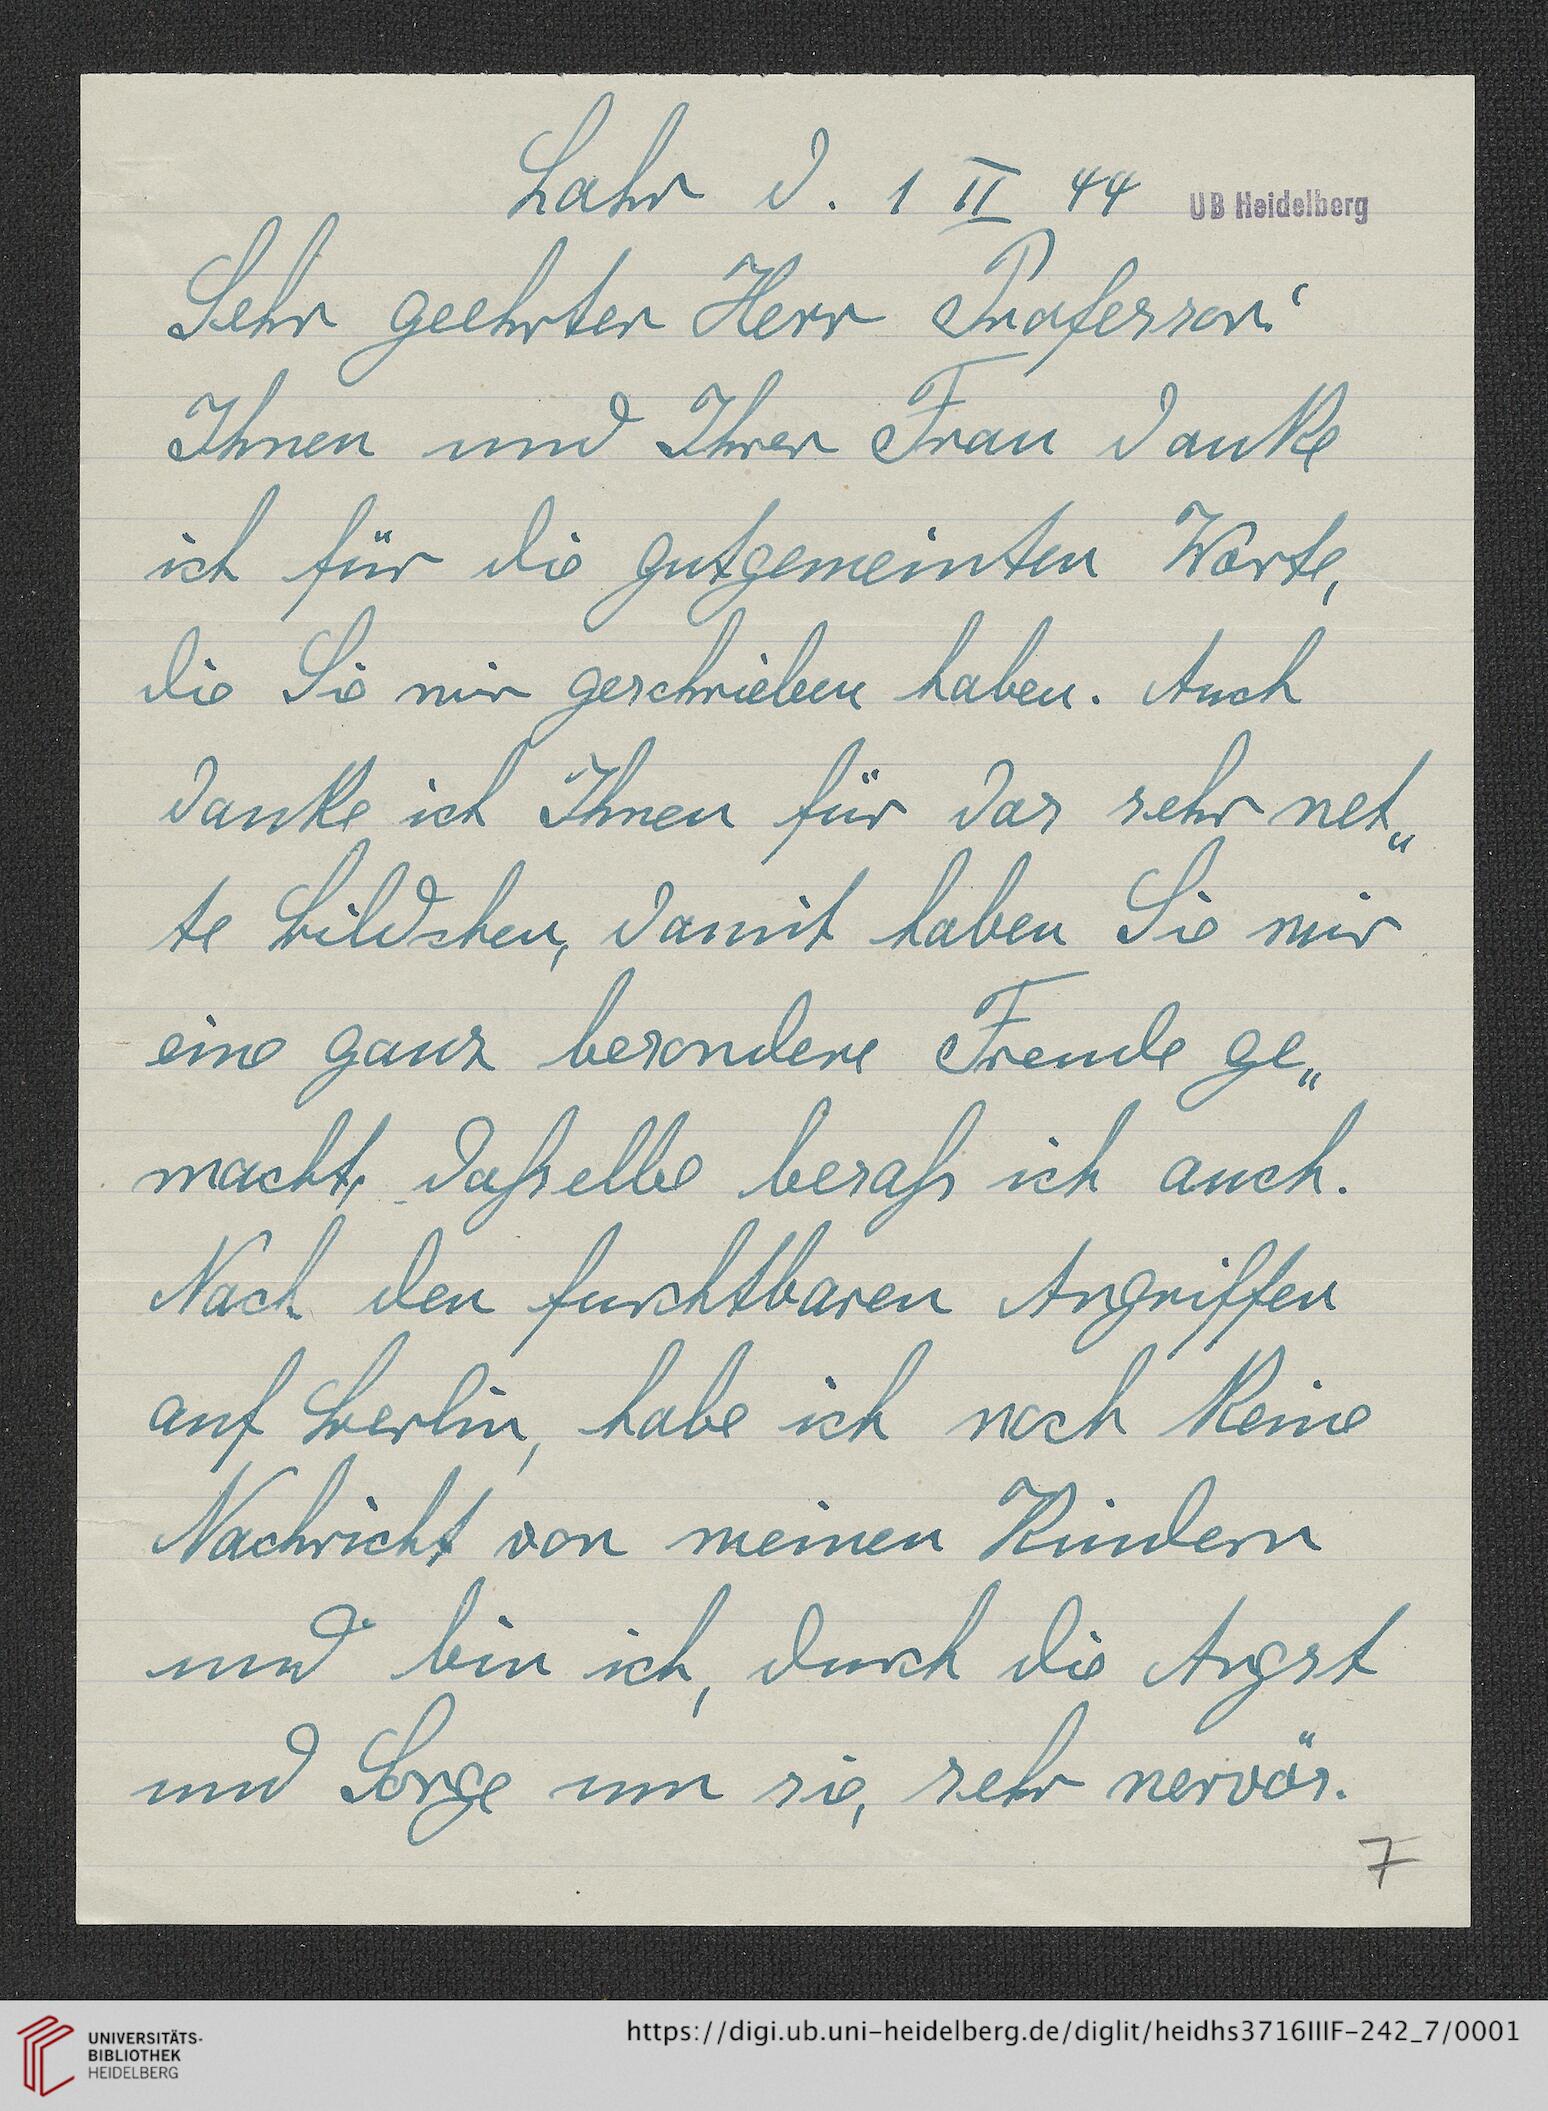 Lahr d. 1 II 44
UB Heidelberg
Sehr geehrter Herr Professor!
Ihnen und Ihrer Frau danke
ich für die gutgemeinten Worte,
die Sie mir geschrieben haben. Auch
danke ich Ihnen für das sehr net„
te Bildchen, damit haben Sie mir
eine ganz besondere Freude ge„
macht, daßselbe besaß ich auch.
Nach den furchtbaren Angriffen
auf Berlin, habe ich noch keine
Nachricht von meinen Kindern
und bin ich, durch die Angst
und Sorge um sie, sehr nervös.
7
UNIVERSITÄTS-
BIBLIOTHEK
HEIDELBERG
https://digi.ub.uni-heidelberg.de/diglit/heidhs3716IIIF-242_7/0001